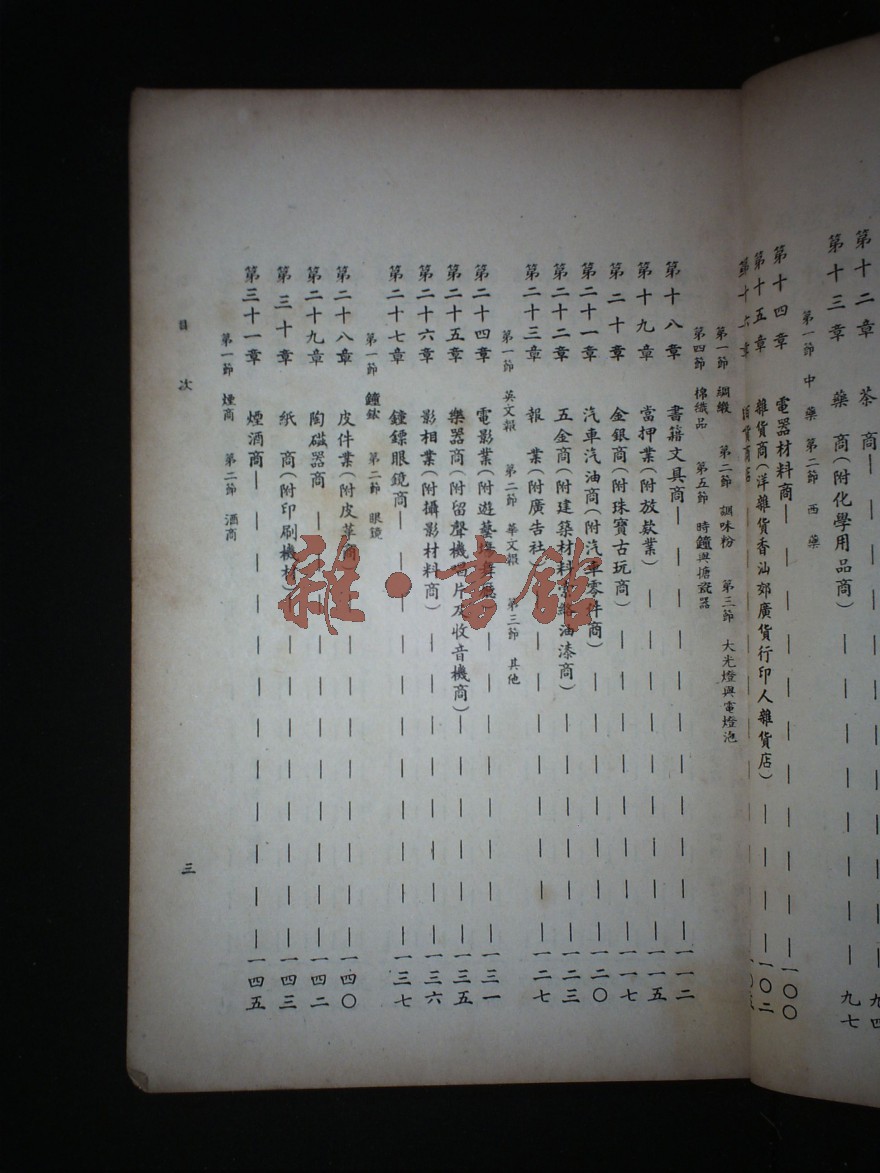 第十二章　茶　商　九四
第十三章　藥　商（附化學用品商）　九七
第一節　中　藥　第二節　西　藥
第十四章　電器材料商　一〇〇
第十五章　雜貨商（洋雜貨香汕郊廣貨行印人雜貨店）　一〇二
第十六章
第一節　綢緞　第二節　調味粉　第三節　大光燈與電燈泡
第四節　棉織品　第五節　時鐘與搪瓷器
第十八章　書籍文具商　一一二
第十九章　當押業（附放款業）　一一五
第二十章　金銀商（附珠寶古玩商）　一一七
第二十一章　汽車汽油商（附汽車零件商）　一二〇
第二十二章　五金商（附建築材料 油漆商）　一二三
第二十三章　報　業（附廣告社）　一二七
第一節　英文報　第二節　華文報　第三節　其他
第二十四章　電影業（附遊藝　一三一
第二十五章　樂器商（附留聲機唱片及收音機商）　一三五
第二十六章　影相業（附攝影材料商）　一三六
第二十七章　鐘鏢眼鏡商　一三七
第一節　鐘錶　第二節　眼鏡
第二十八章　皮件業（附皮革商）　一四〇
第二十九章　陶磁器商　一四二
第三十章　紙　商（附印刷機材）　一四三
第三十一章　煙酒商　一四五
第一節　煙商　第二節　酒商
目　次　三
雜·書館